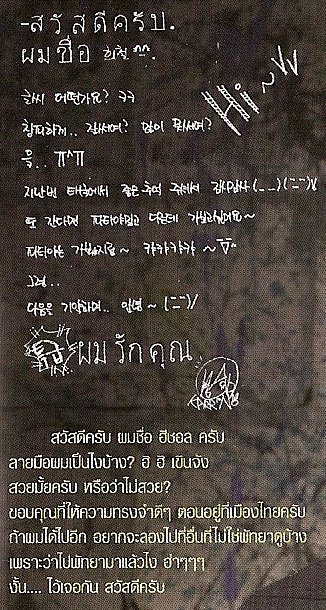 -สวัสดีครับ.
ผมชื่อ 희철 ^^.
Hi~ VV
글씨 어떤가요? ㅋㅋ
창피하게.. 잘써여? 많이 못써여?
윽.. ㅠ^ㅠ
지난번 태국에서 좋은 추억 주셔서 감사합니다 (_ _) (ㅡ_ㅡ)
또 간다면 파타야말고 다른데 가보고싶어요~
파타야는 가봤지요~ 캬캬캬캬 ~
그럼..
다음을 기약하며.. 안녕~ (ㅡ_ㅡ)/
특급 ผมรักคุณ
สวัสดีครับ ผมชื่อ ฮีชอล ครับ
ลายมือผมเป็นไงบ้าง? ฮิ ฮิ เขินจัง
สวยมั้ยครับ หรือว่าไม่สวย?
ขอบคุณที่ให้ความทรงจำดีๆ ตอนอยู่ที่เมืองไทยครับ
ถ้าผมได้ไปอีก อยากจะลองไปที่อื่นที่ไม่ใช่พัทยาดูบ้าง
เพราะว่าไปพัทยามาแล้วไง ฮ่าๆๆๆ
งั้น.... ไว้เจอกัน สวัสดีครับ